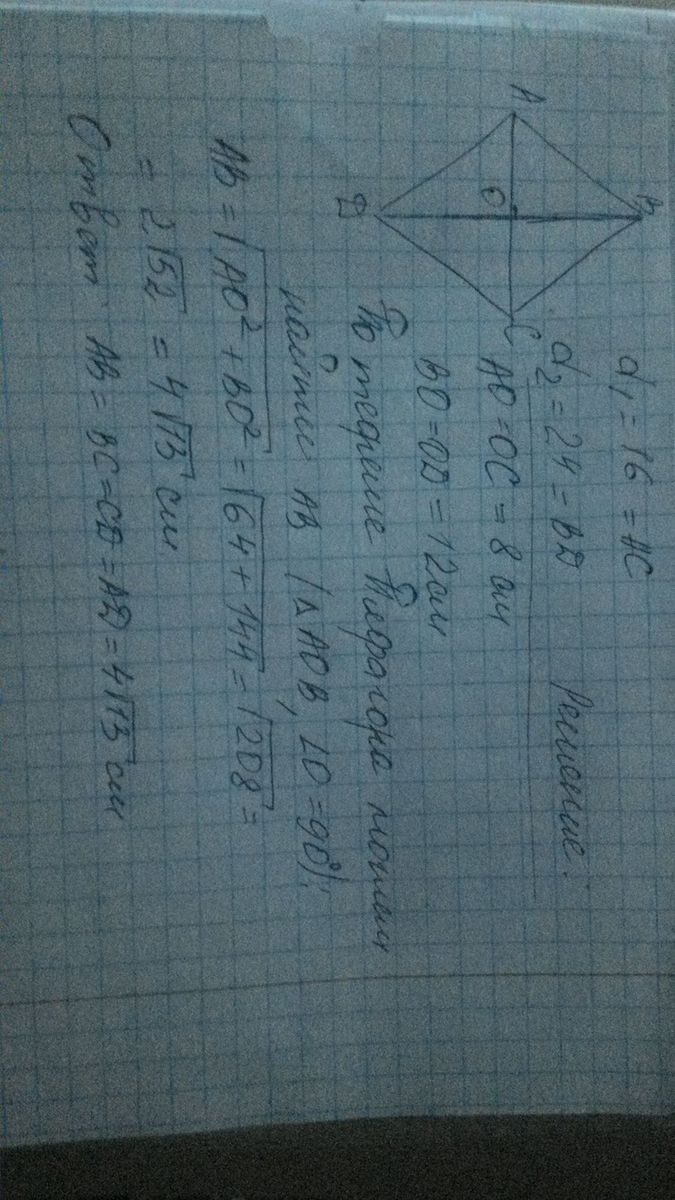 A
B
C
D
O
d₁ = 16 = AC
d₂ = 24 = BD
Решение:
AO = OC = 8 см
BO = OD = 12 см
По теореме Пифагора можем
найти AB (△AOB, ∠O = 90°):
AB = √AO² + BO² = √64 + 144 = √208 =
= 2√52 = 4√13 см
Ответ: AB = BC = CD = AD = 4√13 см